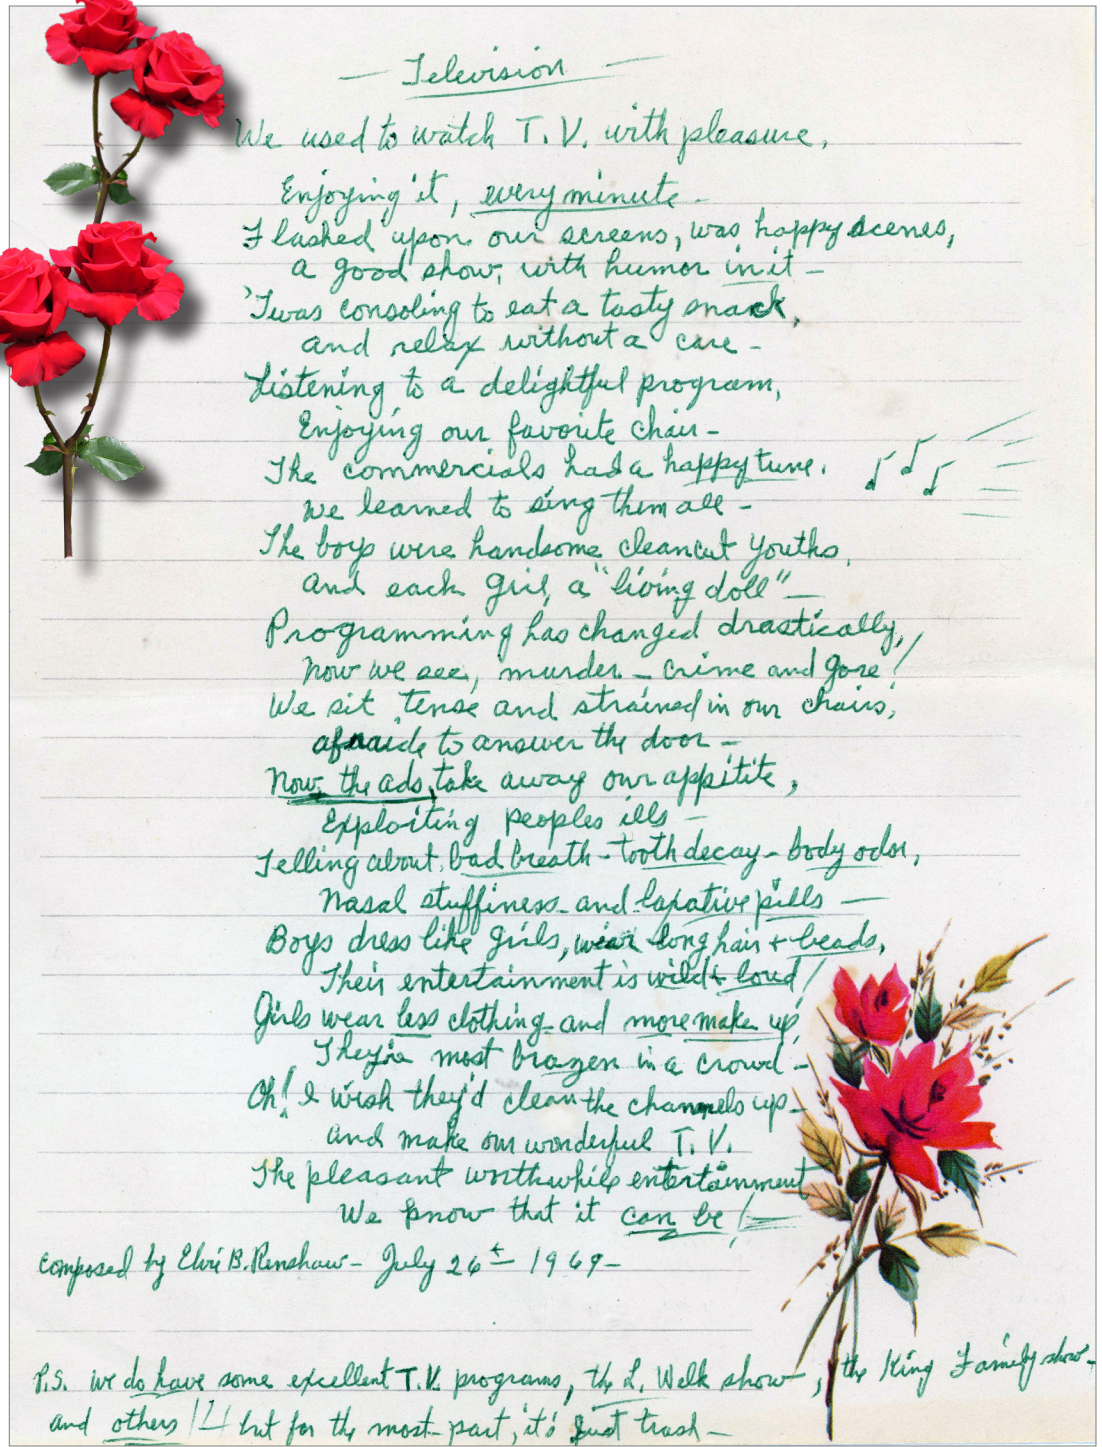 — Television —
We used to watch T.V. with pleasure,
Enjoying it, every minute -
Flashed upon our screens, was happy scenes,
a good show, with humor in it -
'Twas consoling to eat a tasty snack,
and relax without a care -
Listening to a delightful program,
Enjoying our favorite chair -
The commercials had a happy tune.
We learned to sing them all -
The boys were handsome cleancut youths,
and each girl, a "living doll" -
Programming has changed drastically,
now we see, murder - crime and gore!
We sit tense and strained in our chairs,
afraide to answer the door -
Now, the ads, take away our appitite,
Exploiting peoples ills -
Telling about, bad breath - tooth decay - body odor,
Nasal stuffiness - and laxative pills —
Boys dress like girls, wear long hair + beads,
Their entertainment is wild + loud!
Girls wear less clothing - and more make up,
They're most brazen in a crowd -
Oh! I wish they'd clean the channels up -
and make our wonderful T.V.
The pleasant worthwhile entertainment
We know that it can be!
Composed by Elvie B. Renshaw - July 26th 1969 -
P.S. we do have some excellent T.V. programs, the L. Welk show -, the King Family show -
and others!!! but for the most part, it's just trash -